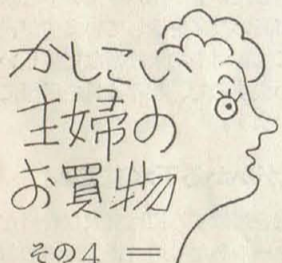 かしこい
主婦の
お買物
その4 =